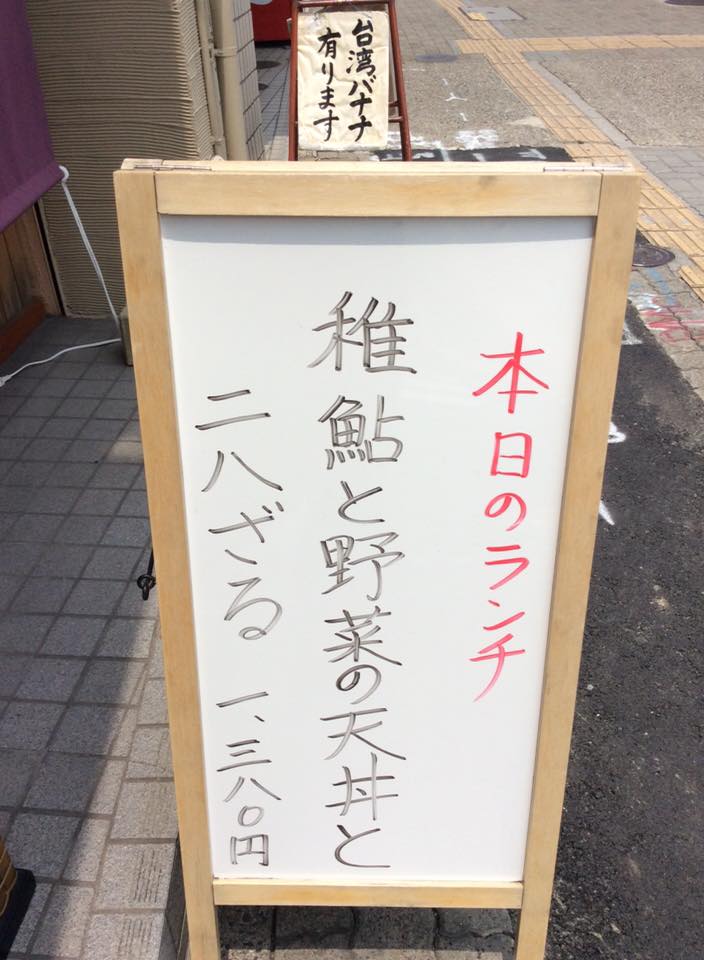 台湾バナナ
有ります
本日のランチ
稚鮎と野菜の天丼と
二八ざる 一、三八〇円